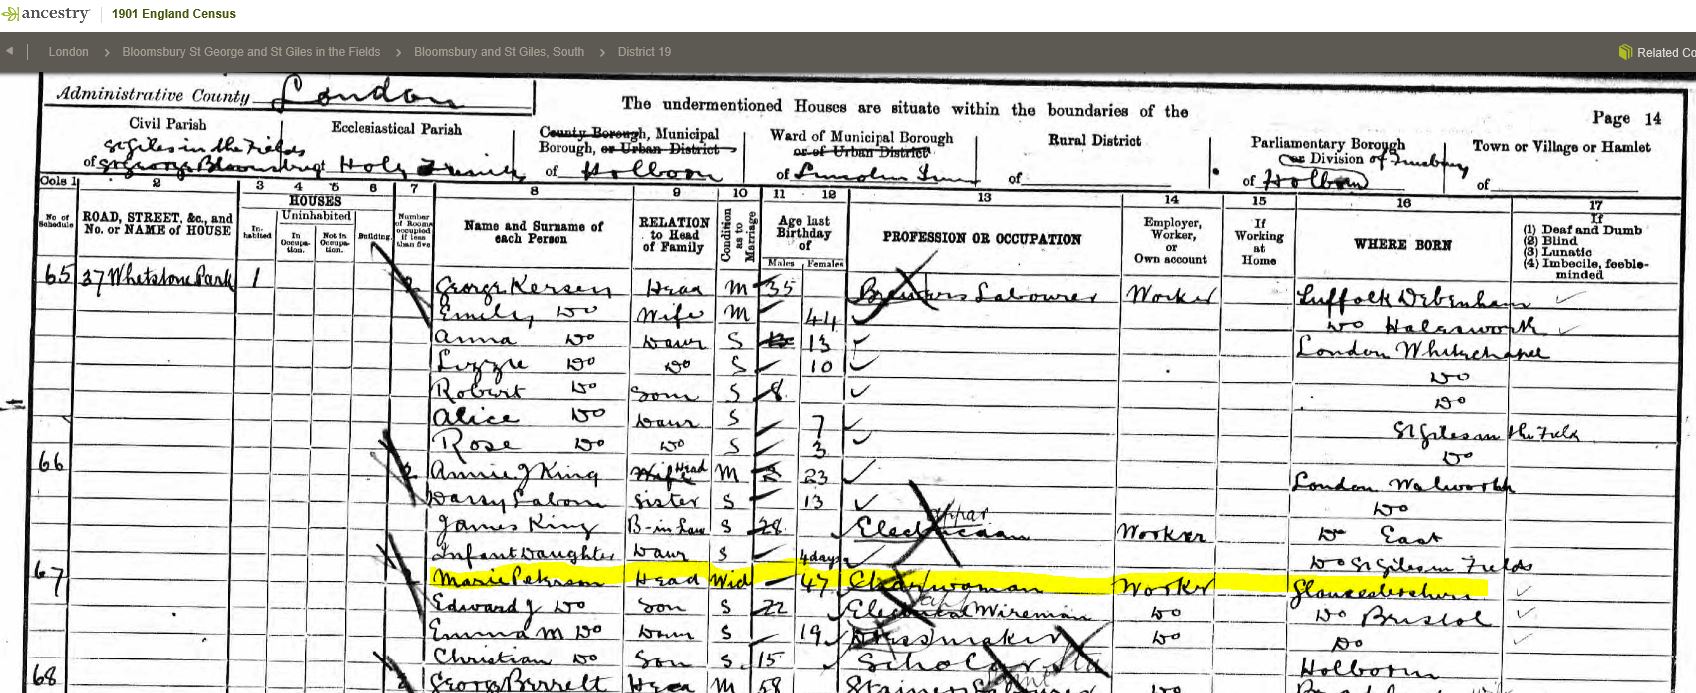 ancestry 1901 England Census
London > Bloomsbury St George and St Giles in the Fields > Bloomsbury and St Giles, South > District 19 Related Co
Administrative County London
The undermentioned Houses are situate within the boundaries of the
Page 14
Civil Parish
of St Giles in the Fields
St George Bloomsbury
Ecclesiastical Parish
Holy Trinity
County Borough, Municipal
Borough, or Urban District
of Holborn
Ward of Municipal Borough
or of Urban District
of Lincolns Inn
Rural District
of
Parliamentary Borough
or Division of Finsbury
of Holborn
Town or Village or Hamlet
of
Cols 1 2 3 4 5 6 7 8 9 10 11 12 13 14 15 16 17
No. of Schedule
ROAD, STREET, &c., and No. or NAME of HOUSE
HOUSES
Inhabited
Uninhabited
In Occupation.
Not in Occupation.
Building.
Number of Rooms occupied if less than five
Name and Surname of each Person
RELATION to Head of Family
Condition as to Marriage
Age last Birthday of
Males Females
PROFESSION OR OCCUPATION
Employer, Worker, or Own account
If Working at Home
WHERE BORN
If
(1) Deaf and Dumb
(2) Blind
(3) Lunatic
(4) Imbecile, feeble-minded
65 37 Whetstone Park 1 2 George Kersey Head M 35 Brewers Labourer Worker Suffolk Debenham
Emily Do Wife M 44 Do Halesworth
Anna Do Daur S 13 London Whitechapel
Lizzie Do Do S 10 Do
Robert Do Son S 8 Do
Alice Do Daur S 7 St Giles in the Field
Rose Do Do S 3 Do
66 2 Annie J King Wife Head M 23 London Walworth
Sister S 13 Do
James King B-in Law S 28 Electrician appar Worker Do East
Infant Daughter Daur S 4 days Do St Giles in Fields
67 2 Marie Peterson Head Wid 47 Charwoman Worker Gloucestershire
Edward J Do Son S 22 Electrical Wireman Do Do Bristol
Emma M Do Daur S 19 Dressmaker Do Do
Christian Do Son S 15 Scholar Holborn
68 2 George Berrett Head M 58 Do